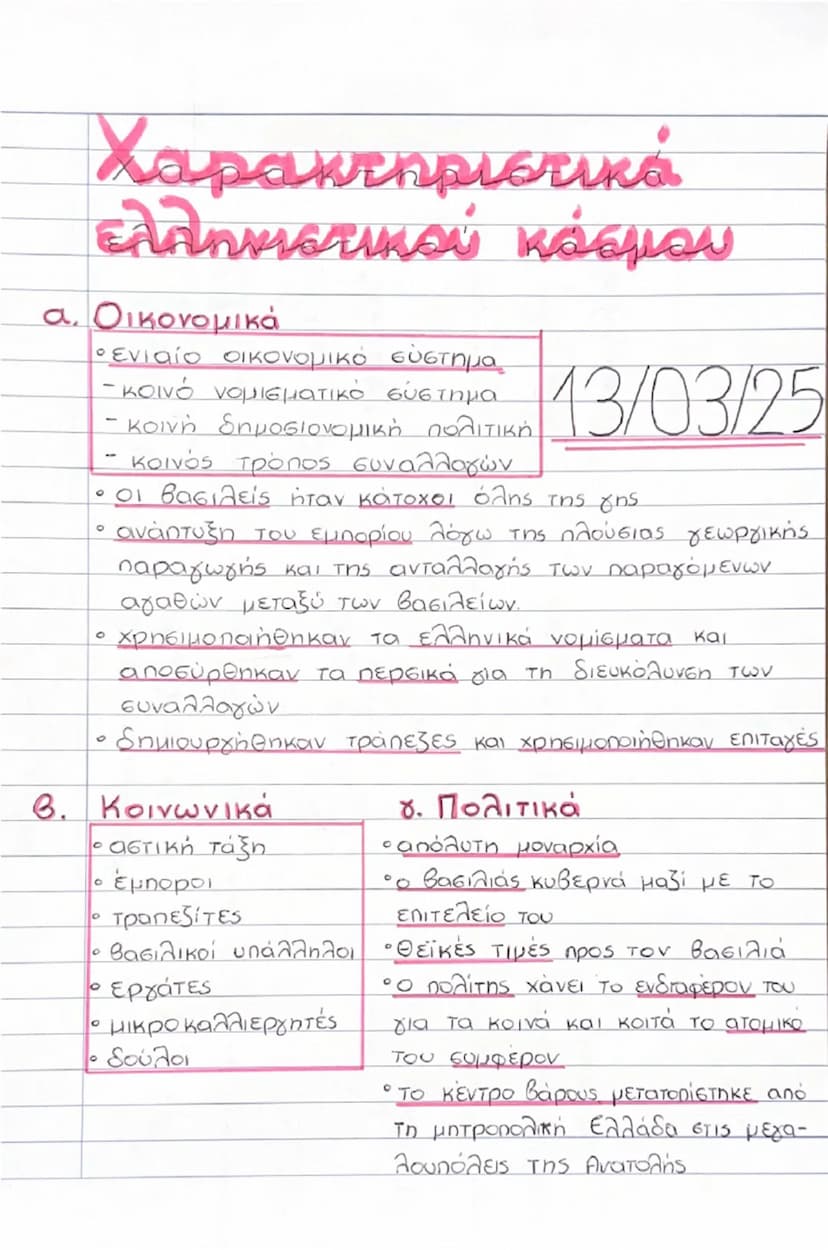 Χαρακτηριστικά
ελληνιστικού κόσμου
α. Οικονομικά
° ενιαίο οικονομικό σύστημα
- κοινό νομισματικό σύστημα
- κοινή δημοσιονομική πολιτική
- κοινός τρόπος συναλλαγών
13/03/25
° οι βασιλείς ήταν κάτοχοι όλης της γης
° ανάπτυξη του εμπορίου λόγω της πλούσιας γεωργικής
παραγωγής και της ανταλλαγής των παραγόμενων
αγαθών μεταξύ των βασιλείων.
° χρησιμοποιήθηκαν τα ελληνικά νομίσματα και
αποσύρθηκαν τα περσικά για τη διευκόλυνση των
συναλλαγών
° δημιουργήθηκαν τράπεζες και χρησιμοποιήθηκαν επιταγές
β. Κοινωνικά
° αστική τάξη
° έμποροι
° τραπεζίτες
° βασιλικοί υπάλληλοι
° εργάτες
° μικροκαλλιεργητές
° δούλοι
γ. Πολιτικά
° απόλυτη μοναρχία
° ο βασιλιάς κυβερνά μαζί με το
επιτελείο του
° θεϊκές τιμές προς τον βασιλιά
° ο πολίτης χάνει το ενδιαφέρον του
για τα κοινά και κοιτά το ατομικό
του συμφέρον
° το κέντρο βάρους μετατοπίστηκε από
τη μητροπολική Ελλάδα στις μεγα-
λουπόλεις της Ανατολής